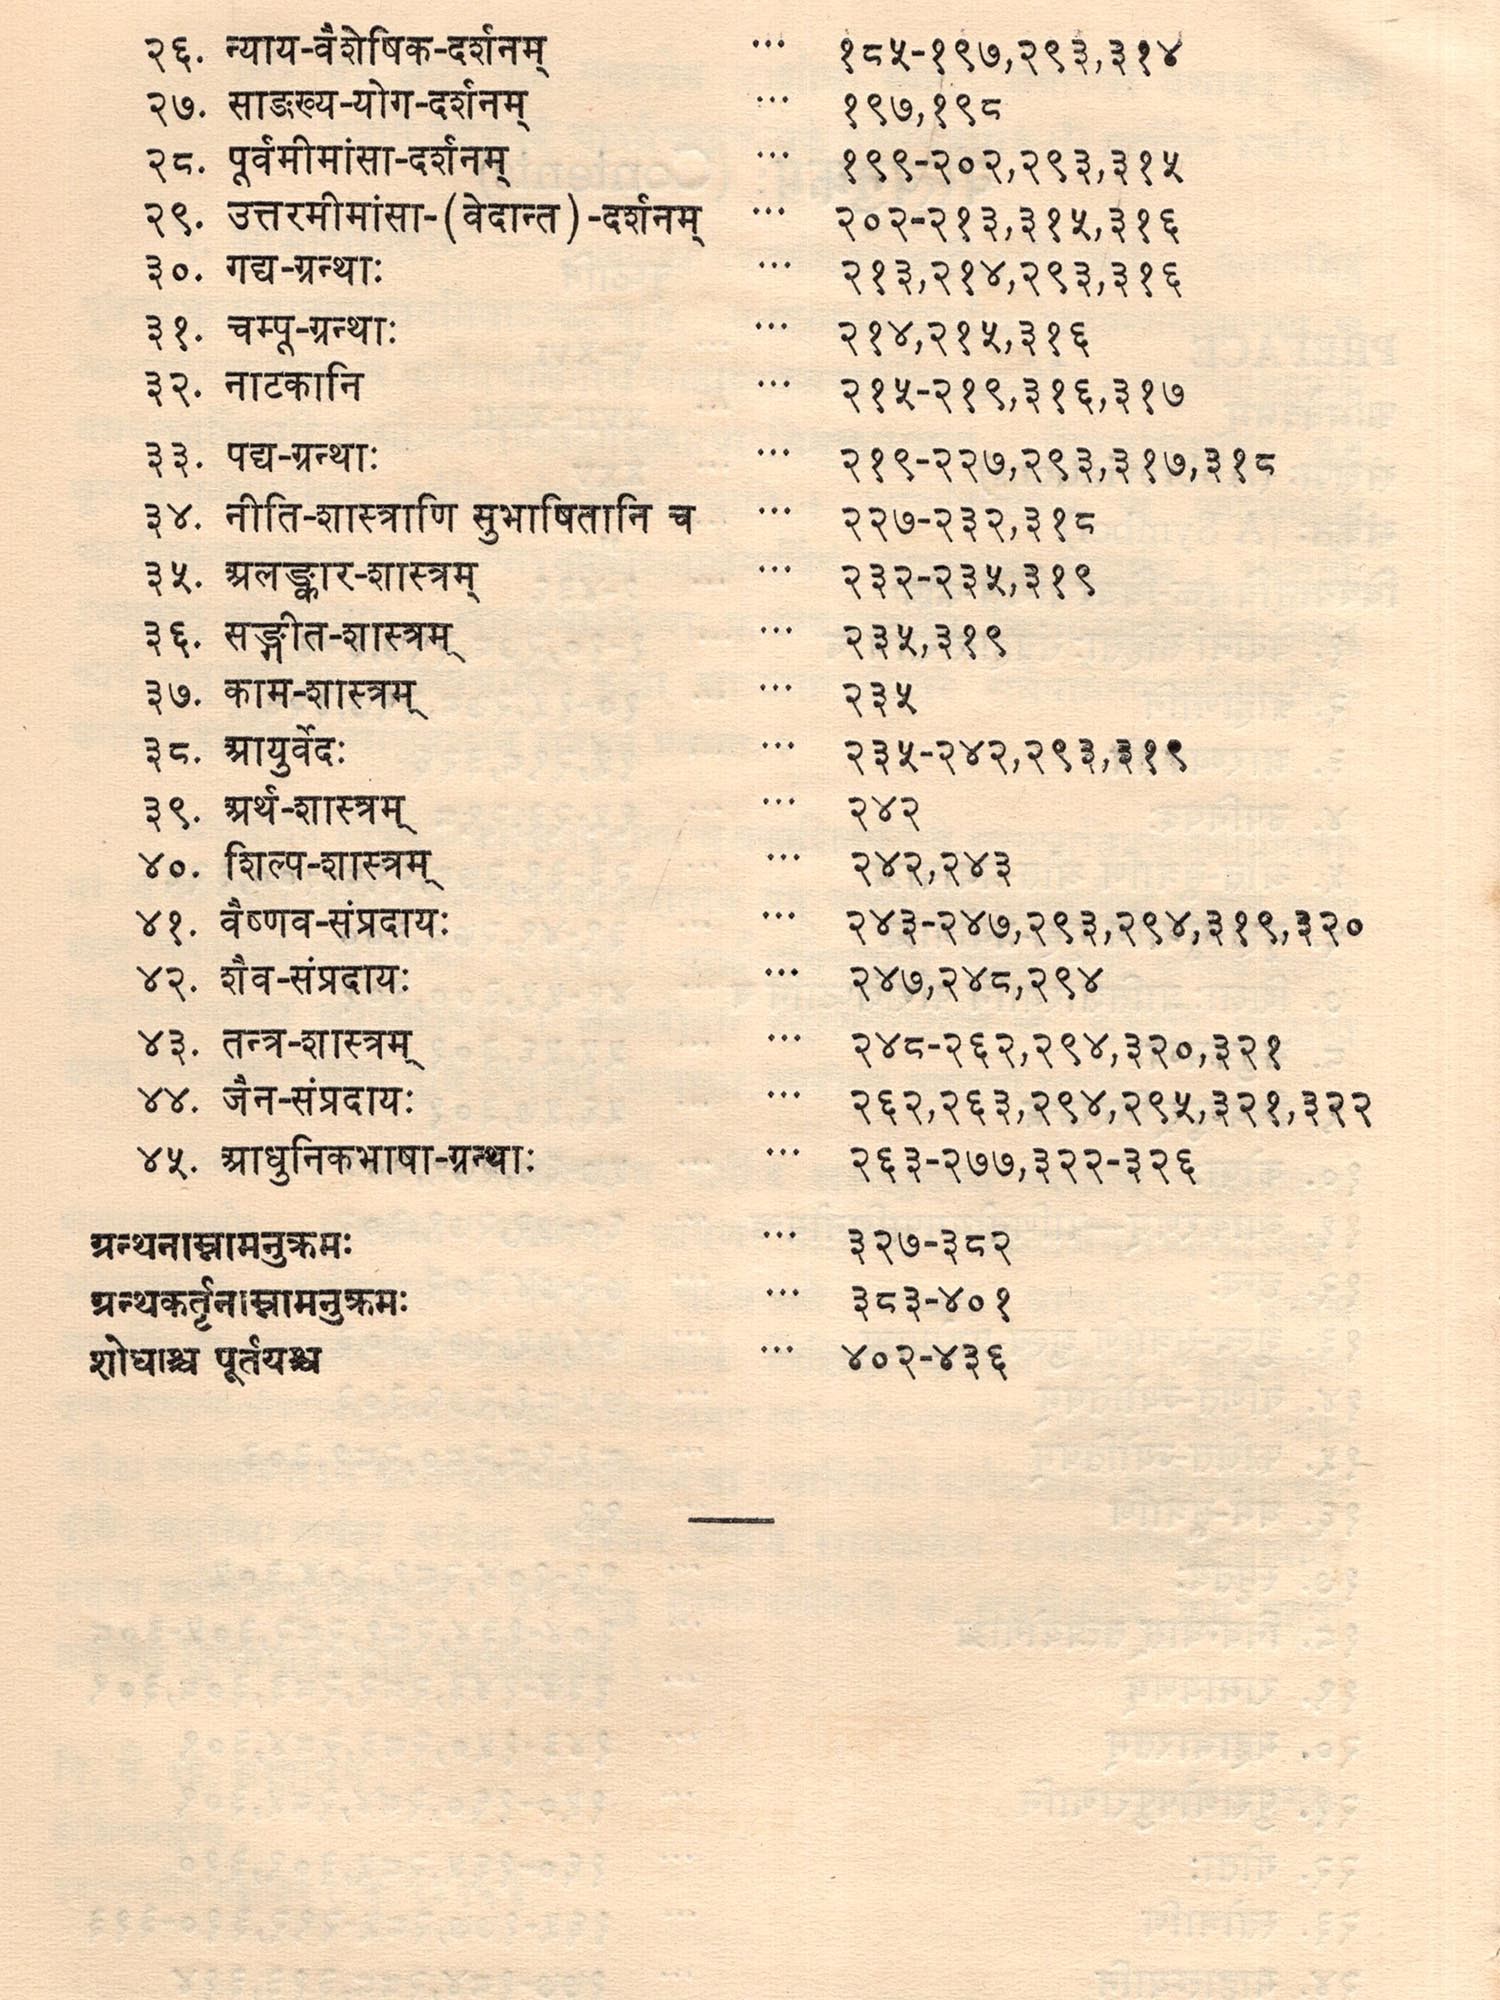 २६. न्याय-वैशेषिक-दर्शनम् ... १८५-१९७,२९३,३१४
२७. साङख्य-योग-दर्शनम् ... १९७,१९८
२८. पूर्वमीमांसा-दर्शनम् ... १९९-२०२,२९३,३१५
२९. उत्तरमीमांसा-(वेदान्त)-दर्शनम् ... २०२-२१३,३१५,३१६
३०. गद्य-ग्रन्थाः ... २१३,२१४,२९३,३१६
३१. चम्पू-ग्रन्थाः ... २१४,२१५,३१६
३२. नाटकानि ... २१५-२१९,३१६,३१७
३३. पद्य-ग्रन्थाः ... २१९-२२७,२९३,३१७,३१८
३४. नीति-शास्त्राणि सुभाषितानि च ... २२७-२३२,३१८
३५. अलङ्कार-शास्त्रम् ... २३२-२३५,३१९
३६. सङ्गीत-शास्त्रम् ... २३५,३१९
३७. काम-शास्त्रम् ... २३५
३८. आयुर्वेदः ... २३५-२४२,२९३,३१९
३९. अर्थ-शास्त्रम् ... २४२
४०. शिल्प-शास्त्रम् ... २४२,२४३
४१. वैष्णव-संप्रदायः ... २४३-२४७,२९३,२९४,३१९,३२०
४२. शैव-संप्रदायः ... २४७,२४८,२९४
४३. तन्त्र-शास्त्रम् ... २४८-२६२,२९४,३२०,३२१
४४. जैन-संप्रदायः ... २६२,२६३,२९४,२९५,३२१,३२२
४५. आधुनिकभाषा-ग्रन्थाः ... २६३-२७७,३२२-३२६
ग्रन्थनाम्नामनुक्रमः ... ३२७-३८२
ग्रन्थकर्तृनाम्नामनुक्रमः ... ३८३-४०१
शोधाश्च पूर्तयश्च ... ४०२-४३६